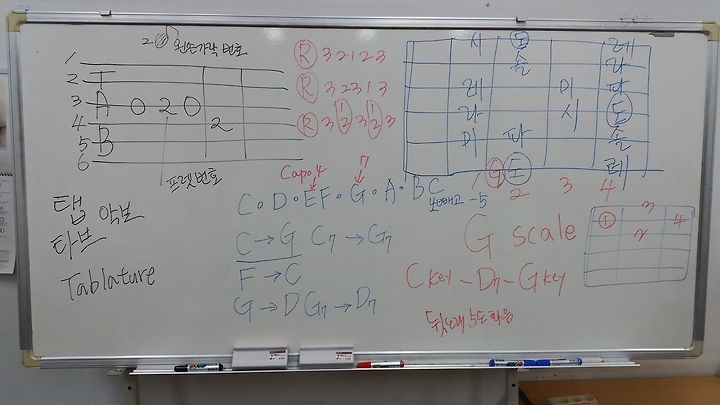 2 ② 왼손가락 번호
1
2 T
3 A 0 2 0
4 2
5 B
6
프렛번호
탭 악보
타브
Tablature
Ⓡ 3 2 1 2 3
Ⓡ 3 2 3 1 3
Ⓡ 3 2 1 3 2 1 3
Capo 4 7
C · D · E F · G · A · B C
C → G C7 → G7
F → C
G → D G7 → D7
시 도 레
솔 라
레 미 파
라 시 도
미 파 솔
솔 도 레
1 2 3 4
G scale
C key - D7 - G key
뒷노래 5도화음
3
① 4
2